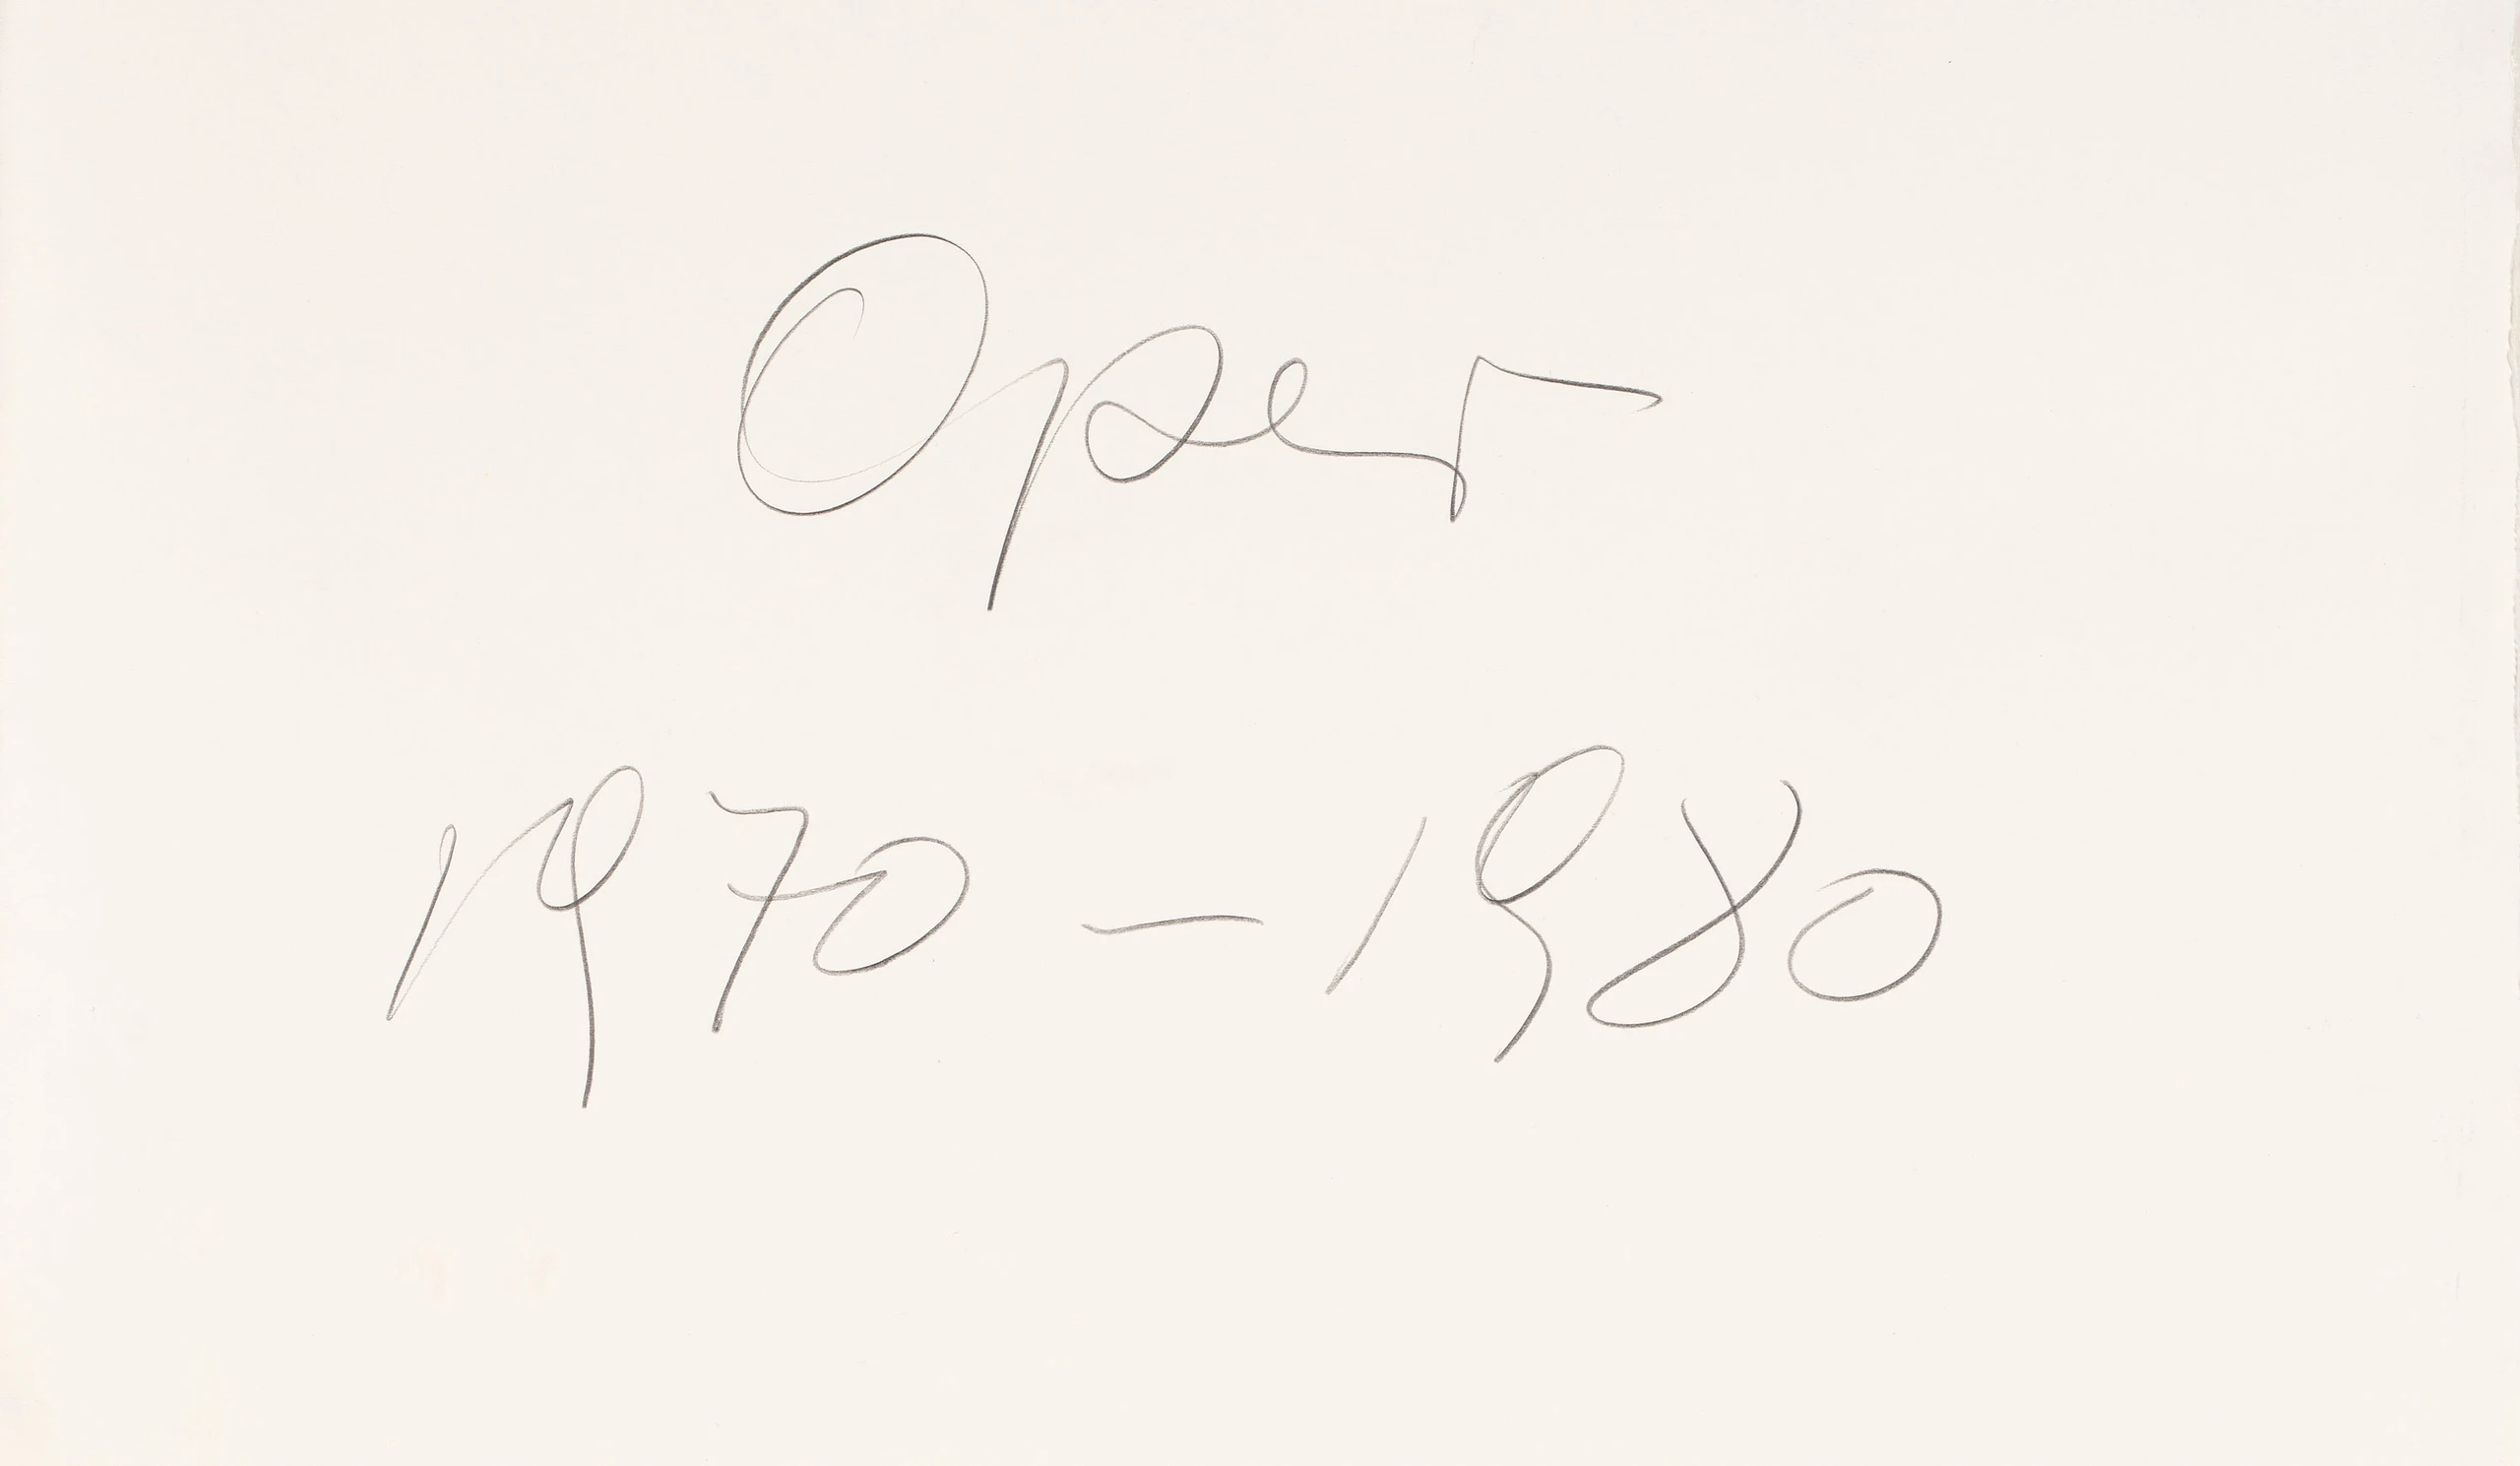 Oper
1970 – 1980